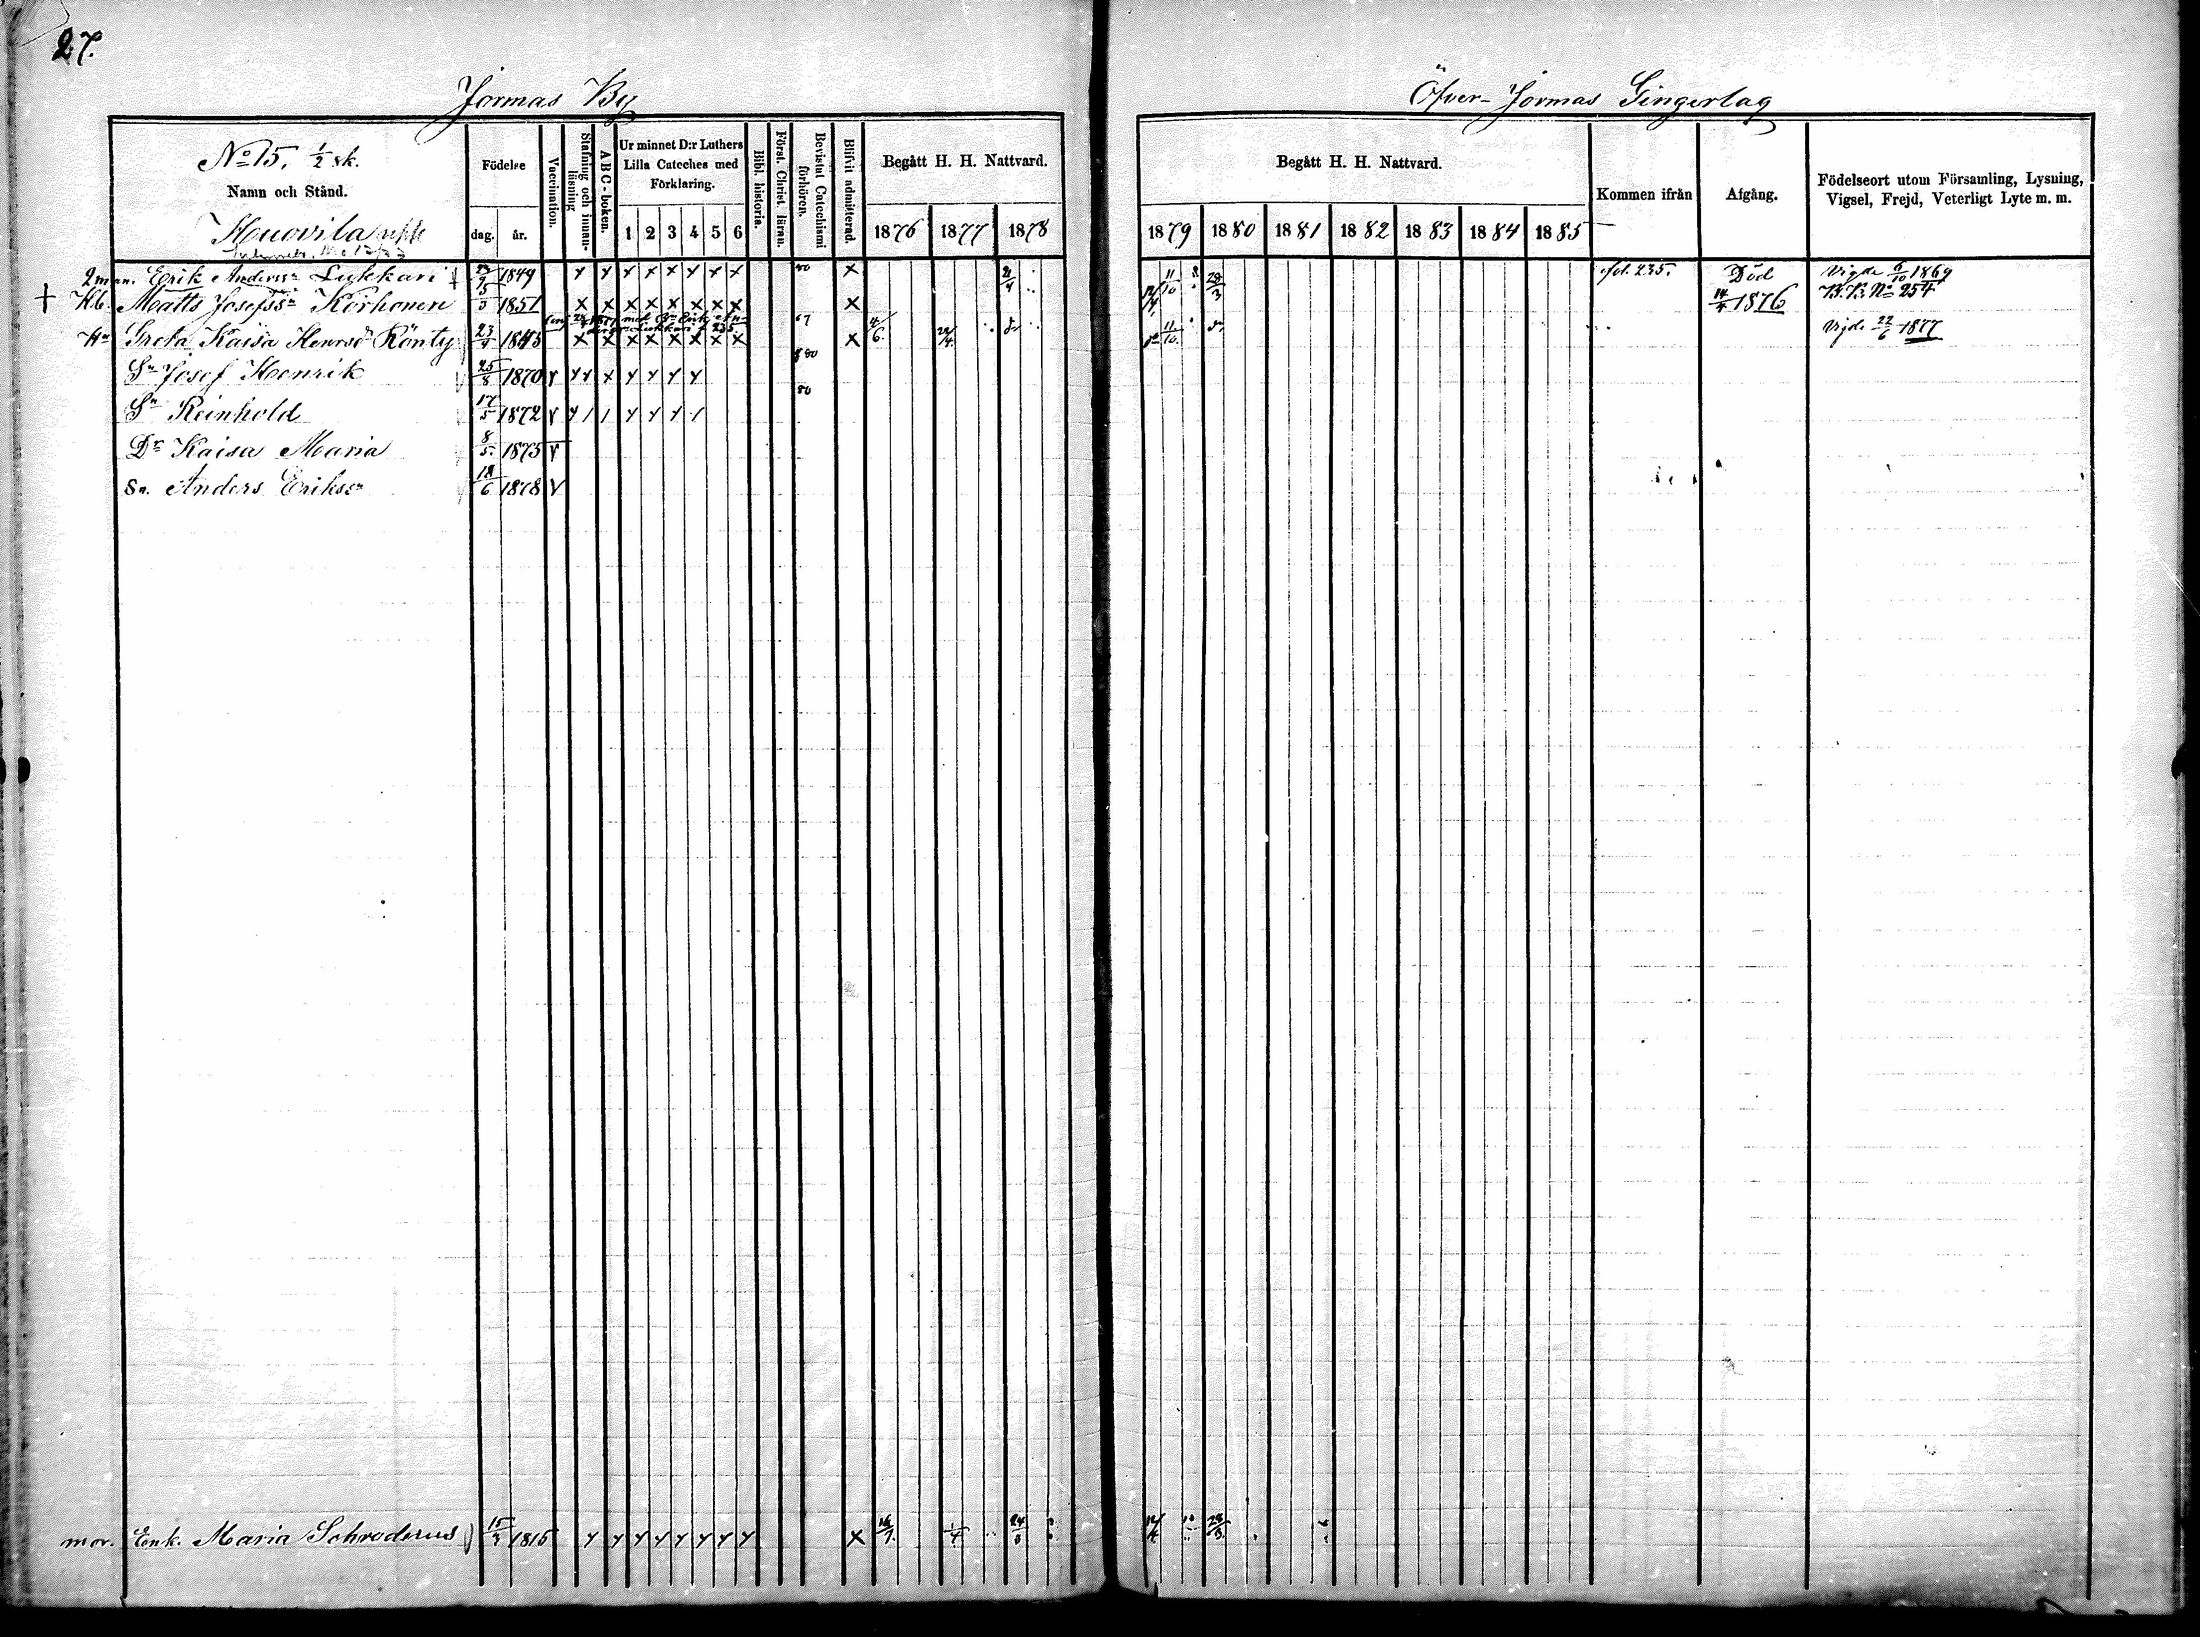 27.
Jormas By
Öfver-Jormas Gingerlag
No 15. 1/2 sk.
Namn och Stånd.
Huovila
Födelse
dag.
år.
Vaccination.
Stafning och innan-
läsning
ABC-boken.
Ur minnet D:r Luthers
Lilla Cateches med
Förklaring.
1 2 3 4 5 6
Bibl. historia.
Först. Christ. läran.
Bevistat Catechismi
förhören.
Blifvit admitterad.
Begått H. H. Nattvard.
1876 1877 1878
Begått H. H. Nattvard.
1879 1880 1881 1882 1883 1884 1885
Kommen ifrån
Afgång.
Födelseort utom Församling, Lysning,
Vigsel, Frejd, Veterligt Lyte m. m.
2 man. Erik Anderss:n Lukkari 23/9 1849 Y Y Y Y Y Y Y Y 80 X 21/4 11/10 28/3 fol. 235. Död Vigde 6/10 1869
† Kb. Matts Josefss:n Korhonen 1851 X X X X X X X X X 14/4 1876 K.K. No 254
Greta Kaisa Henrsd:r Rönty 23/9 1845 X X X X X X X X 67 X 4/6. 22/4 d:o 11/10. d:o Vigde 22/6 1877
S:n Josef Henrik 25/8 1870 Y Y Y X Y Y Y Y 80
S:n Reinhold 17/5 1872 Y Y / / Y Y Y / 80
D:r Kaisa Maria 8/5. 1875 Y
Sn. Anders Erikss:n 18/6 1878 Y
mor. Enk. Maria Schroderus 1815 Y Y Y Y Y Y Y Y X 1/4 28/3.